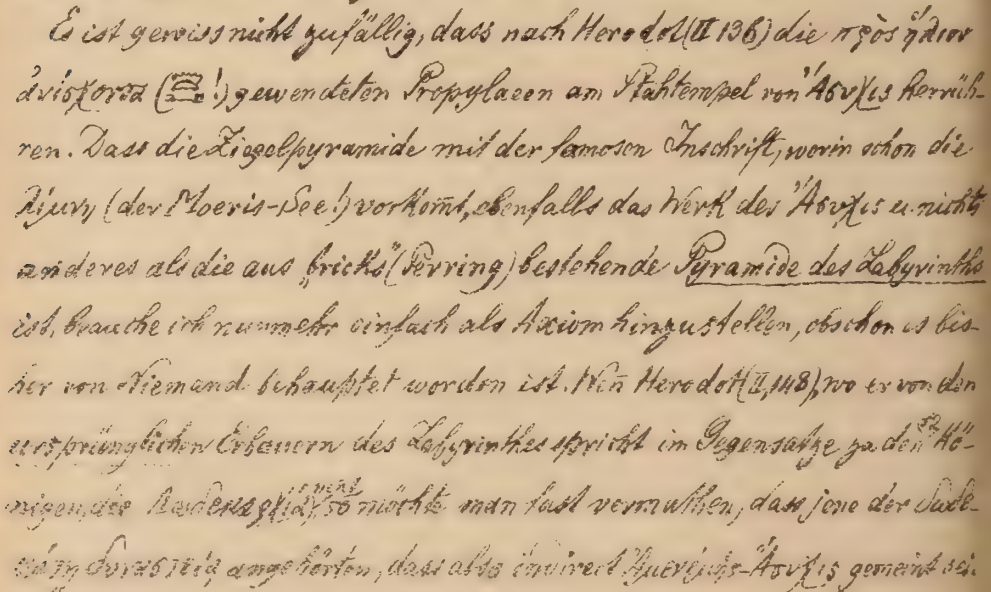 Es ist gewiss nicht zufällig, dass nach Herodot (II 136) die πρὸς ἥλιον
ἀνίσχοντα (!) gewendeten Propylaeen am Ptahtempel von Ἄσυχις herrüh-
ren. Dass die Ziegelpyramide mit der famosen Inschrift, worin schon die
λίμνη (der Moeris-See!) vorkom̄t, ebenfalls das Werk des Ἄσυχις u. nichts
anderes als die aus „bricks“ (Perring) bestehende Pyramide des Labyrinths
ist, brauche ich nunmehr einfach als Axiom hinzustellen, obschon es bis-
her von Niemand behauptet worden ist. Wen̄ Herodot (II, 148), wo er von den
ursprünglichen Erbauern des Labyrinthes spricht im Gegensatze zu den Kö-
nigen, die so möchte man fast vermuthen, dass jene der
angehörten, dass also indirect Ἄσυχις gemeint sei.